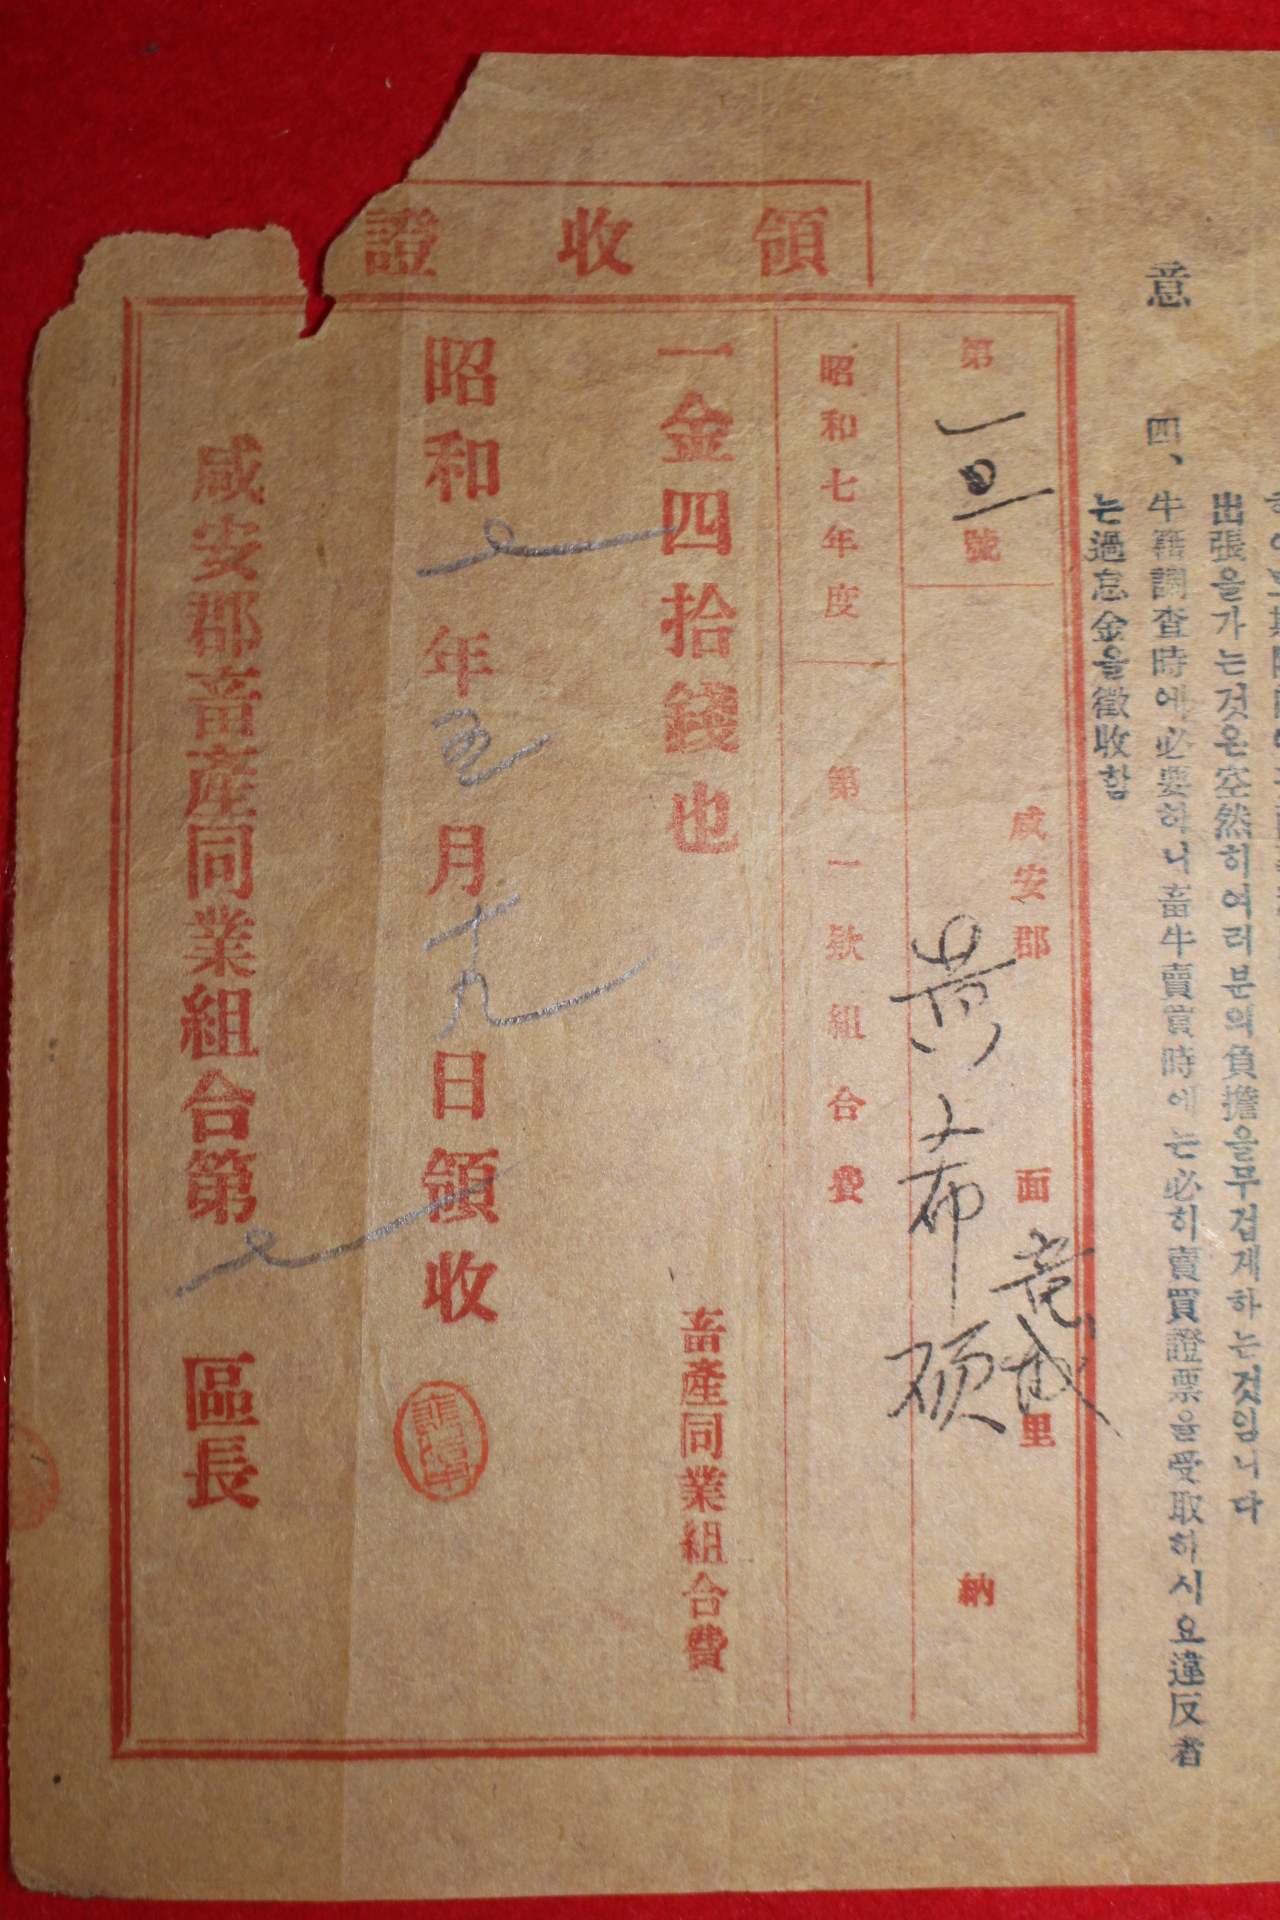 意
出張을가는것은空然히여러분의負擔을무겁게하는것임니다
四、牛籍調査時에必要하니畜牛賣買時에는必히賣買證票을受取하시요違反者
는過怠金을徵收함
領收證
第一 號
咸安郡 面 里
黃希碩 納
昭和七年度 第一 組合費
一金四拾錢也
畜產同業組合費
昭和七年五月十九日領收
咸安郡畜產同業組合第七區長